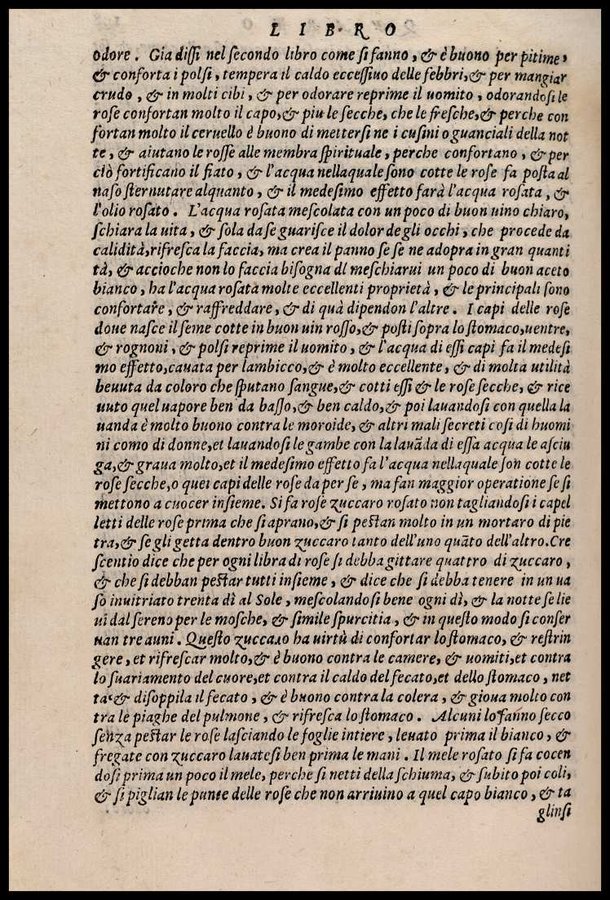 LIBRO
odore. Gia dissi nel secondo libro come si fanno, & è buono per pitime,
& conforta i polsi, tempera il caldo eccessiuo delle febbri, & per mangiar
crudo, & in molti cibi, & per odorare reprime il uomito, odorandosi le
rose confortan molto il capo, & piu le secche, che le fresche, & perche con
fortan molto il ceruello è buono di mettersi ne i cusini o guanciali della not
te, & aiutano le rosse alle membra spirituale, perche confortano, & per
ciò fortificano il fiato, & l'acqua nellaquale sono cotte le rose fa posta al
naso sternutare alquanto, & il medesimo effetto farà l'acqua rosata, &
l'olio rosato. L'acqua rosata mescolata con un poco di buon uino chiaro,
schiara la uita, & sola da se guarisce il dolor degli occhi, che procede da
calidità, rifresca la faccia, ma crea il panno se se ne adopra in gran quanti
tà, & accioche non lo faccia bisogna dl meschiarui un poco di buon aceto
bianco, ha l'acqua rosata molte eccellenti proprietà, & le principali sono
confortare, & raffreddare, & di quà dipendon l'altre. I capi delle rose
doue nasce il seme cotte in buon uin rosso, & posti sopra lo stomaco, uentre,
& rognoni, & polsi reprime il uomito, & l'acqua di essi capi fa il medesi
mo effetto, cauata per lambicco, & è molto eccellente, & di molta utilità
beuuta da coloro che sputano sangue, & cotti essi & le rose secche, & rice
uuto quel uapore ben da basso, & ben caldo, & poi lauandosi con quella la
uanda è molto buono contra le moroide, & altri mali secreti cosi di huomi
ni como di donne, et lauandosi le gambe con la lauãda di essa acqua le asciu
ga, & graua molto, et il medesimo effetto fa l'acqua nellaquale son cotte le
rose secche, o quei capi delle rose da per se, ma fan maggior operatione se si
mettono a cuocer insieme. Si fa rose zuccaro rosato non tagliandosi i capel
letti delle rose prima che si aprano, & si pestan molto in un mortaro di pie
tra, & se gli getta dentro buon zuccaro tanto dell'uno quãto dell'altro. Cre
scentio dice che per ogni libra di rose si debba gittare quattro di zuccaro,
& che si debban pestar tutti insieme, & dice che si debba tenere in un ua
so inuitriato trenta dì al Sole, mescolandosi bene ogni dì, & la notte se lie
ui dal sereno per le mosche, & simile spurcitia, & in questo modo si conser
uan tre anni. Questo zuccaro ha uirtù di confortar lo stomaco, & restrin
gere, et rifrescar molto, & è buono contra le camere, & uomiti, et contra
lo suariamento del cuore, et contra il caldo del fecato, et dello stomaco, net
ta & disoppila il fecato, & è buono contra la colera, & gioua molto con
tra le piaghe del pulmone, & rifresca lo stomaco. Alcuni lo fanno secco
senza pestar le rose lasciando le foglie intiere, leuato prima il bianco, &
fregate con zuccaro lauatesi ben prima le mani. Il mele rosato si fa cocen
dosi prima un poco il mele, perche si netti della schiuma, & subito poi coli,
& si piglian le punte delle rose che non arriuino a quel capo bianco, & ta
glinsi